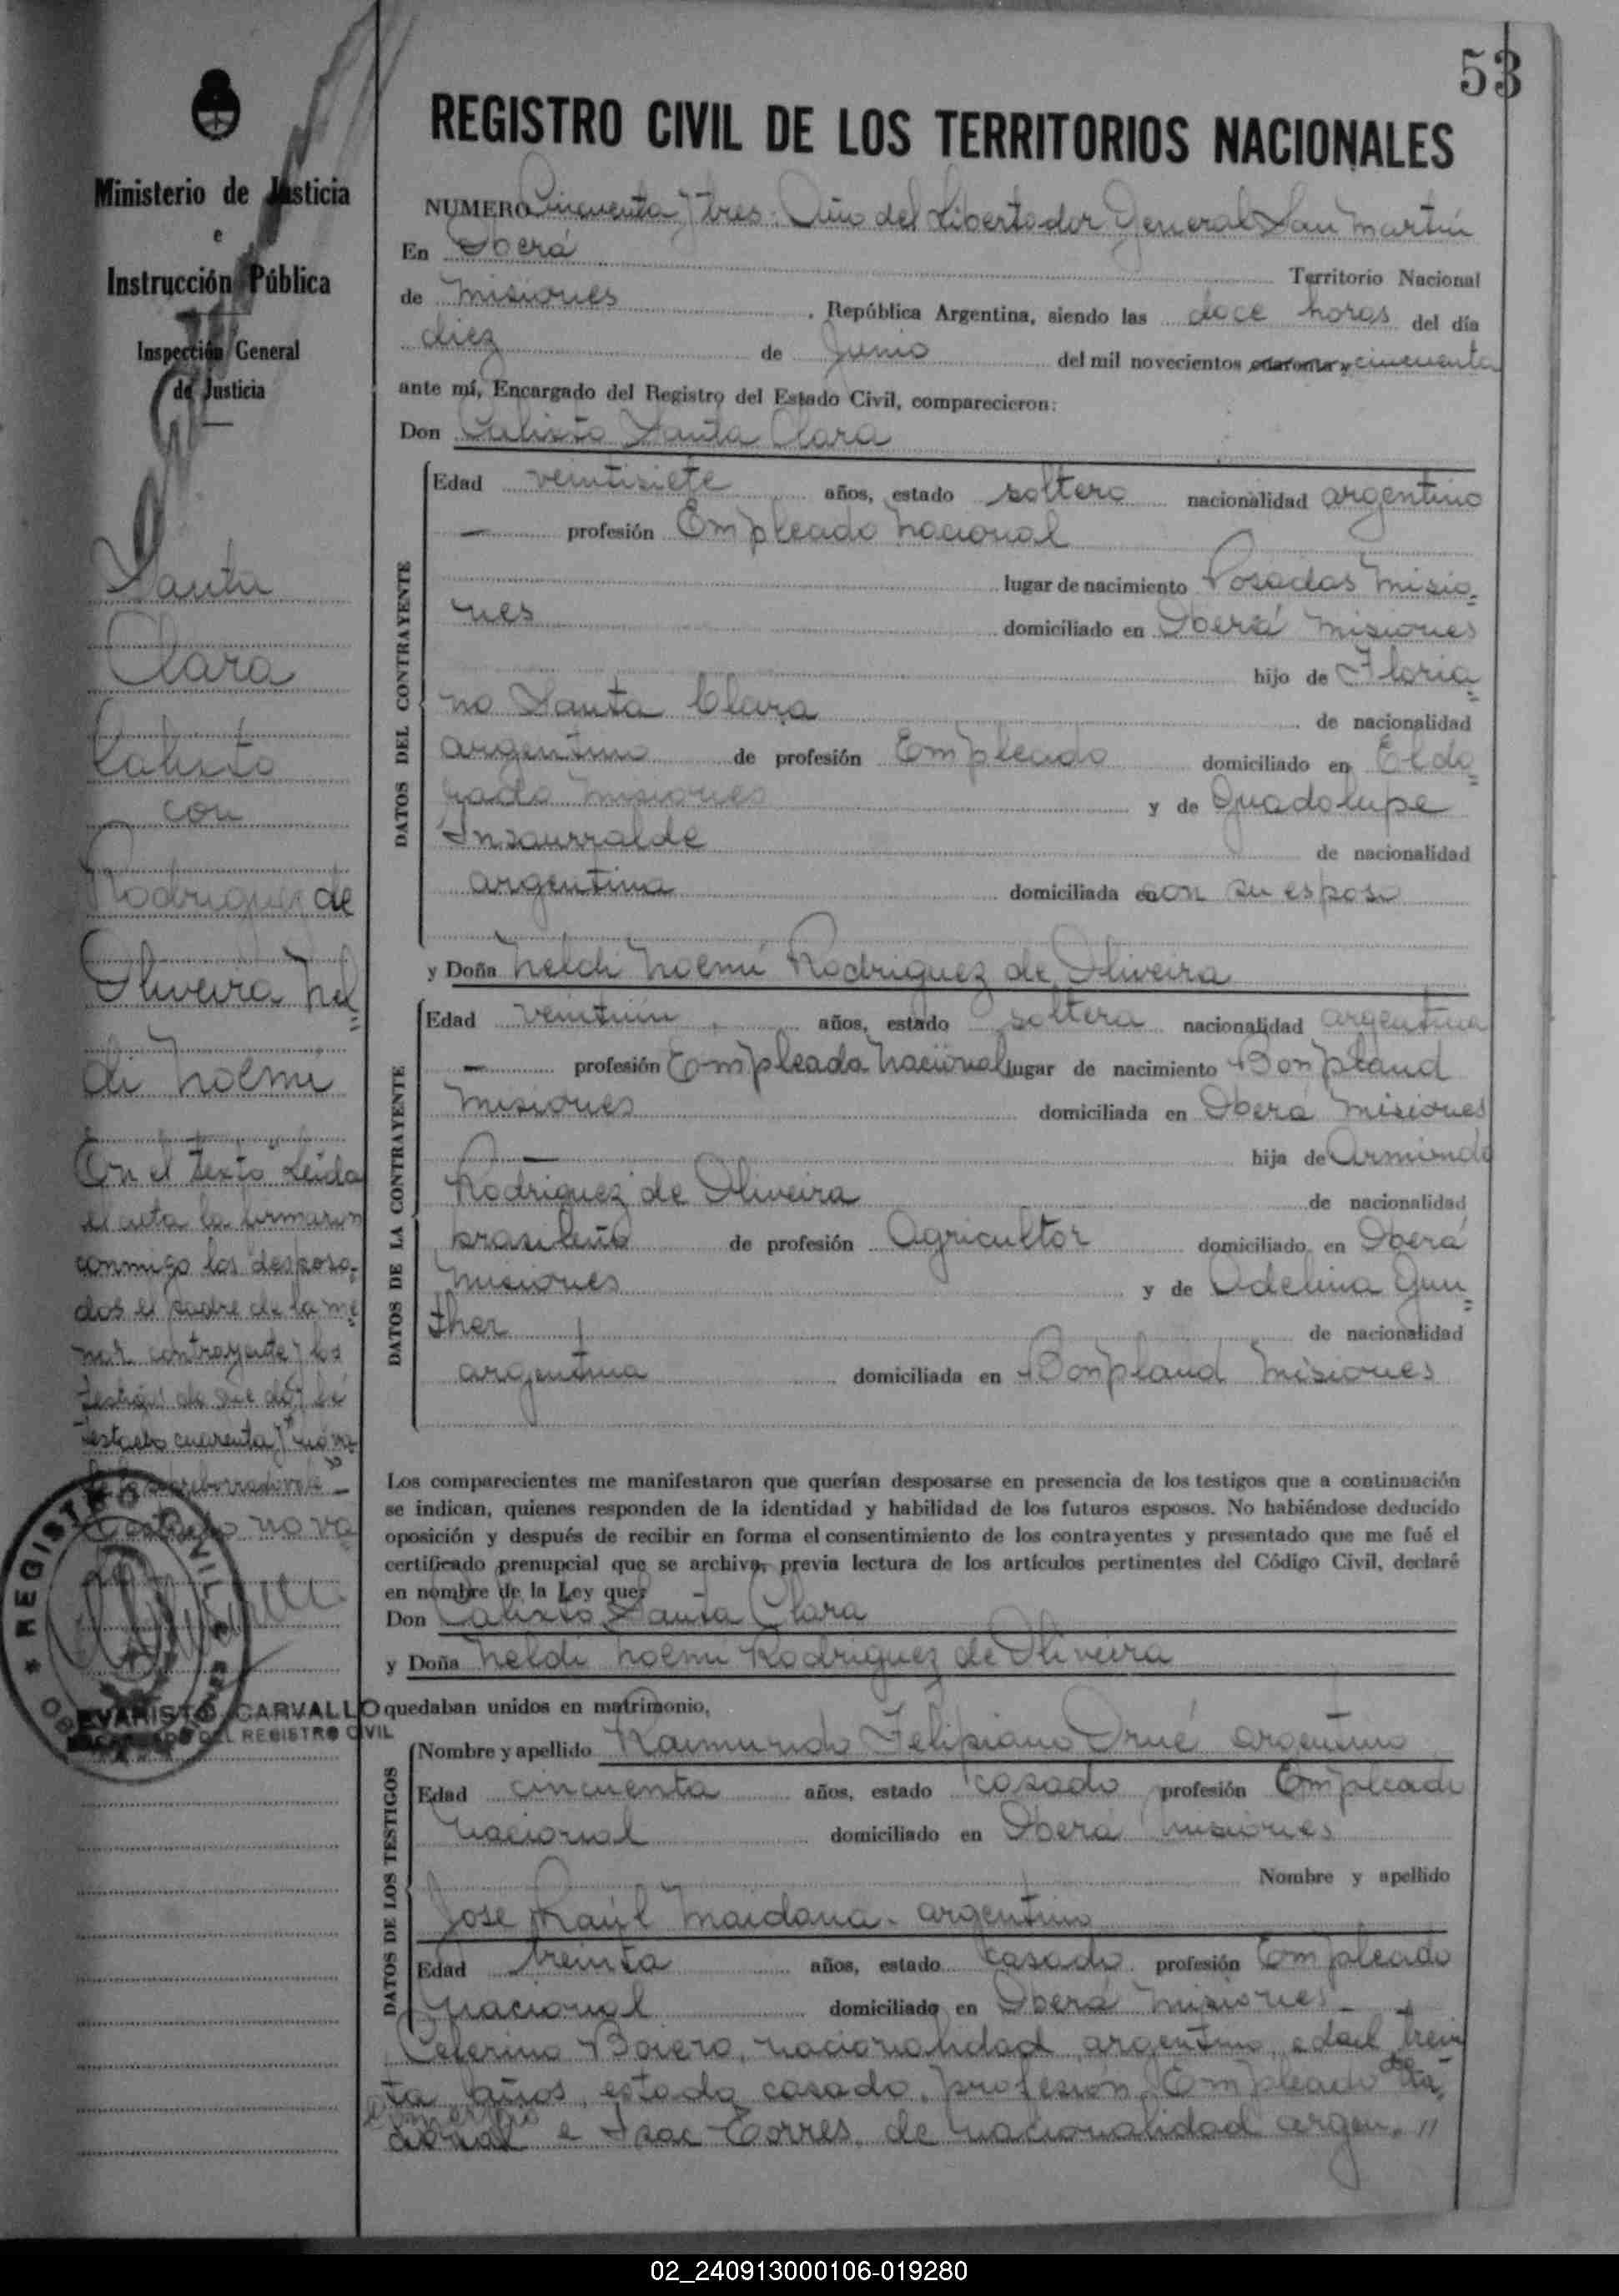 53
Ministerio de Justicia
e
Instrucción Pública
Inspección General
de Justicia
Santa
Clara
Calixto
con
Rodriguez de
Oliveira Nel=
di Noemi
En el texto Leida
el acta la firmaron
conmigo los desposa-
dos el padre de la me
nor contrayente y los
testigos de que doy fé
Testado cuarenta y no va
Testado no va
REGISTRO CIVIL
EVARISTO CARVALLO
ENCARGADO DEL REGISTRO CIVIL
REGISTRO CIVIL DE LOS TERRITORIOS NACIONALES
NUMERO Cincuenta y tres. Año del Libertador General San Martín
En Oberá Territorio Nacional
de Misiones, República Argentina, siendo las doce horas del día
diez de Junio del mil novecientos cuarenta y cincuenta
ante mí, Encargado del Registro del Estado Civil, comparecieron:
Don Calixto Santa Clara
DATOS DEL CONTRAYENTE
Edad veintisiete años, estado soltero nacionalidad argentino
— profesión Empleado Nacional
lugar de nacimiento Posadas Misio=
nes domiciliado en Oberá Misiones
hijo de Floria=
no Santa Clara de nacionalidad
argentino de profesión Empleado domiciliado en Eldo=
rado Misiones y de Guadalupe
Insaurralde de nacionalidad
argentina domiciliada en con su esposo
y Doña Neldi Noemi Rodriguez de Oliveira
DATOS DE LA CONTRAYENTE
Edad veintiún años, estado soltera nacionalidad argentina
— profesión Empleada Nacional lugar de nacimiento Bonpland
Misiones domiciliada en Oberá Misiones
hija de Armindo
Rodriguez de Oliveira de nacionalidad
brasileño de profesión Agricultor domiciliado en Oberá
Misiones y de Adelina Gun=
ther de nacionalidad
argentina domiciliada en Bonpland Misiones
Los comparecientes me manifestaron que querían desposarse en presencia de los testigos que a continuación
se indican, quienes responden de la identidad y habilidad de los futuros esposos. No habiéndose deducido
oposición y después de recibir en forma el consentimiento de los contrayentes y presentado que me fué el
certificado prenupcial que se archiva, previa lectura de los artículos pertinentes del Código Civil, declaré
en nombre de la Ley que:
Don Calixto Santa Clara
y Doña Neldi Noemi Rodriguez de Oliveira
quedaban unidos en matrimonio,
DATOS DE LOS TESTIGOS
Nombre y apellido Raimundo Felipiano Orué argentino
Edad cincuenta años, estado casado profesión Empleado
Nacional domiciliado en Oberá Misiones
Nombre y apellido
Jose Raúl Maidana - argentino
Edad treinta años, estado casado profesión Empleado
Nacional domiciliado en Oberá Misiones
Ceferino Boiero, nacionalidad argentino, edad trein
ta años, estado casado, profesión Empleado de
comercio e Isac Torres, de nacionalidad argen="
02_240913000106-019280